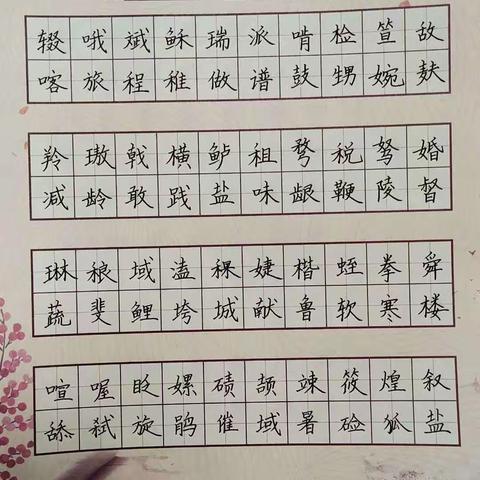 辍哦斌稣瑞派啃检笪故
喀旅程稚做谱鼓甥婉麸
羚璈戟横鲈租骛税驽婚
减龄敢践盐味龈鞭陵督
琳稂域溘稞婕楷蛭拳舜
蔬斐鲤垮城献鲁软寒楼
喧喔眨嫘碛颉竦筱煌叙
舔弑旋鹃催域暑硷狐盐